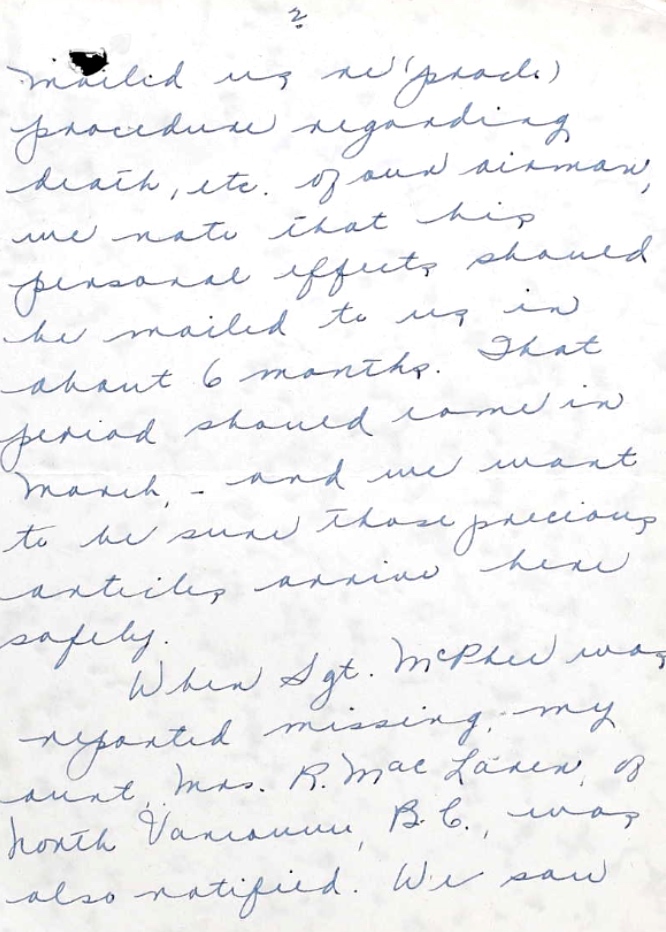 2
mailed us re (proced.)
procedure regarding
death, etc. of our airman,
we note that his
personal effects should
be mailed to us in
about 6 months. That
period should come in
March, - and we want
to be sure those precious
articles arrive here
safely.
When Sgt. McPhee was
reported missing, my
aunt, Mrs. R. Mac Laren, of
North Vancouver, B.C., was
also notified. We saw